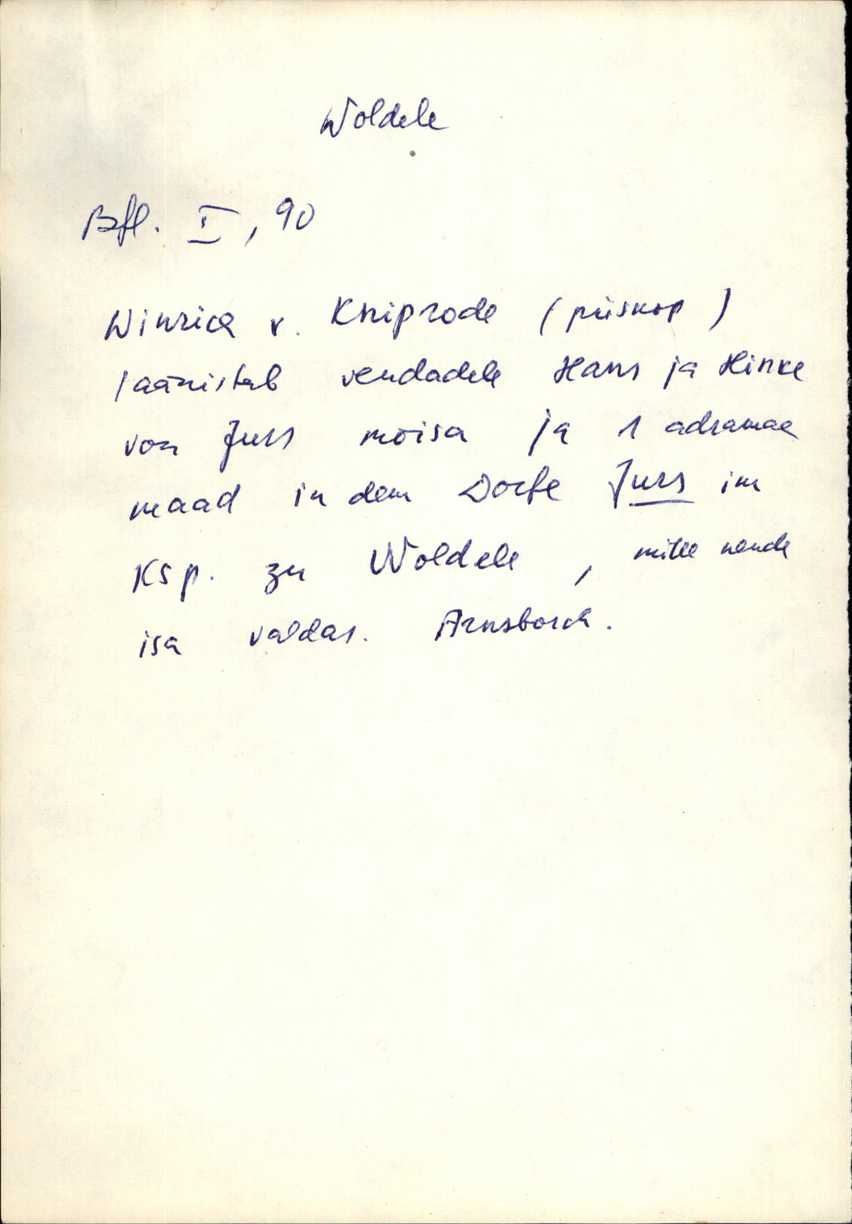 Woldele
Bfl. I, 90
Winrich v. Kniprode (piiskop)
läänistab vendadele Hans ja Hinke
von Jurs mõisa ja 1 adramaa
maad in dem Dorfe Jurs im
Ksp. zu Woldele, mille nende
isa valdas. Arnsborch.